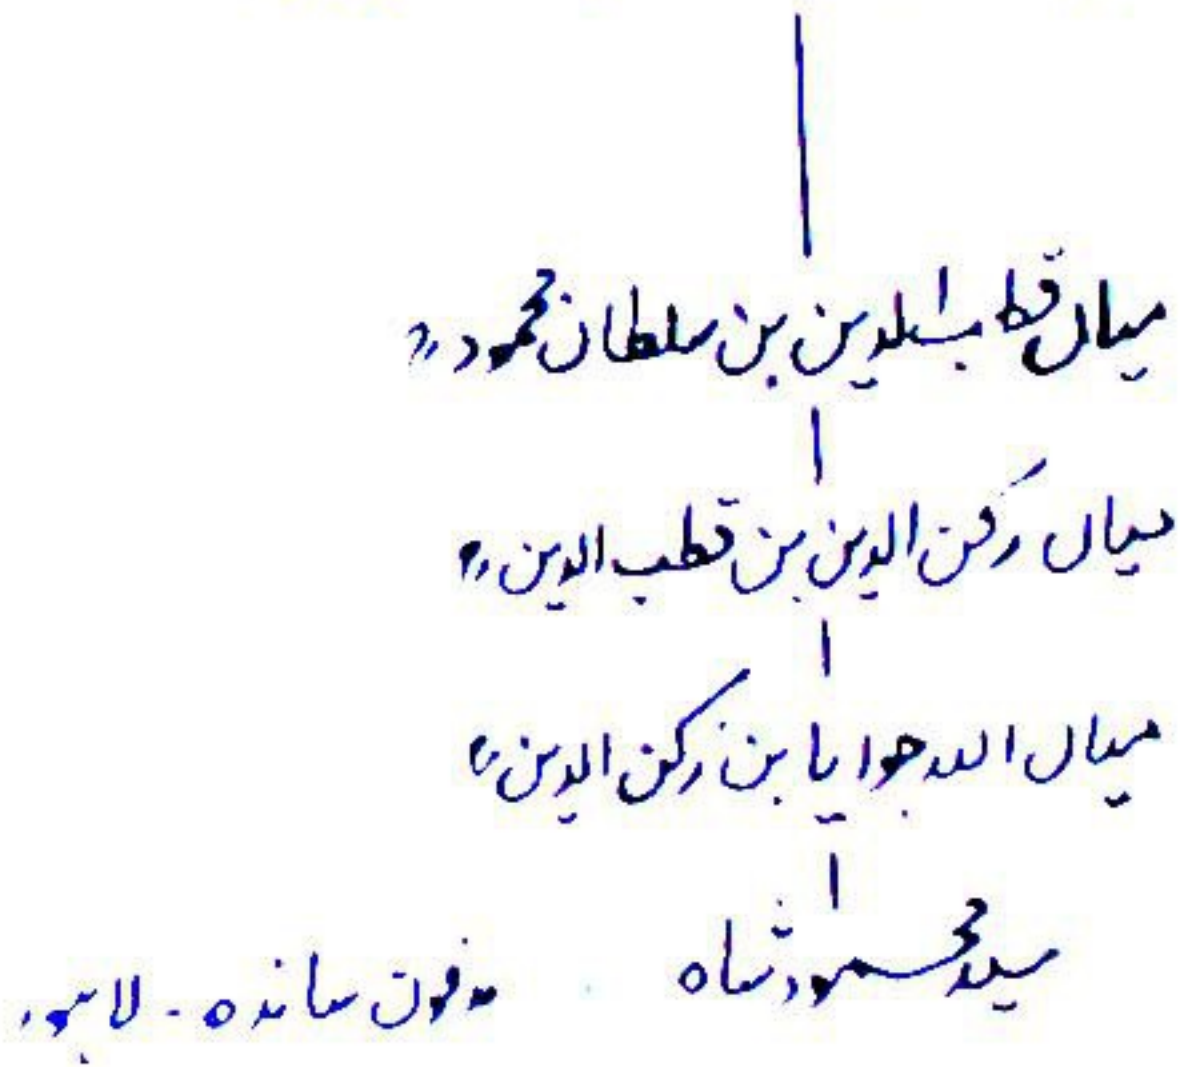 میاں قطب الدین بن سلطان محمود 〃
میاں رکن الدین بن قطب الدین 〃
میاں اللہ جوایا بن رکن الدین 〃
سید محمود شاہ مدفون ساندہ - لاہور